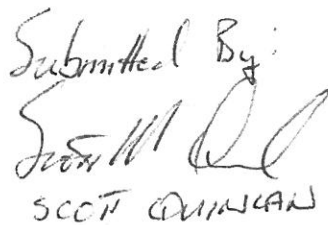 Submitted By:
Scott M Q
SCOTT QUINLAN